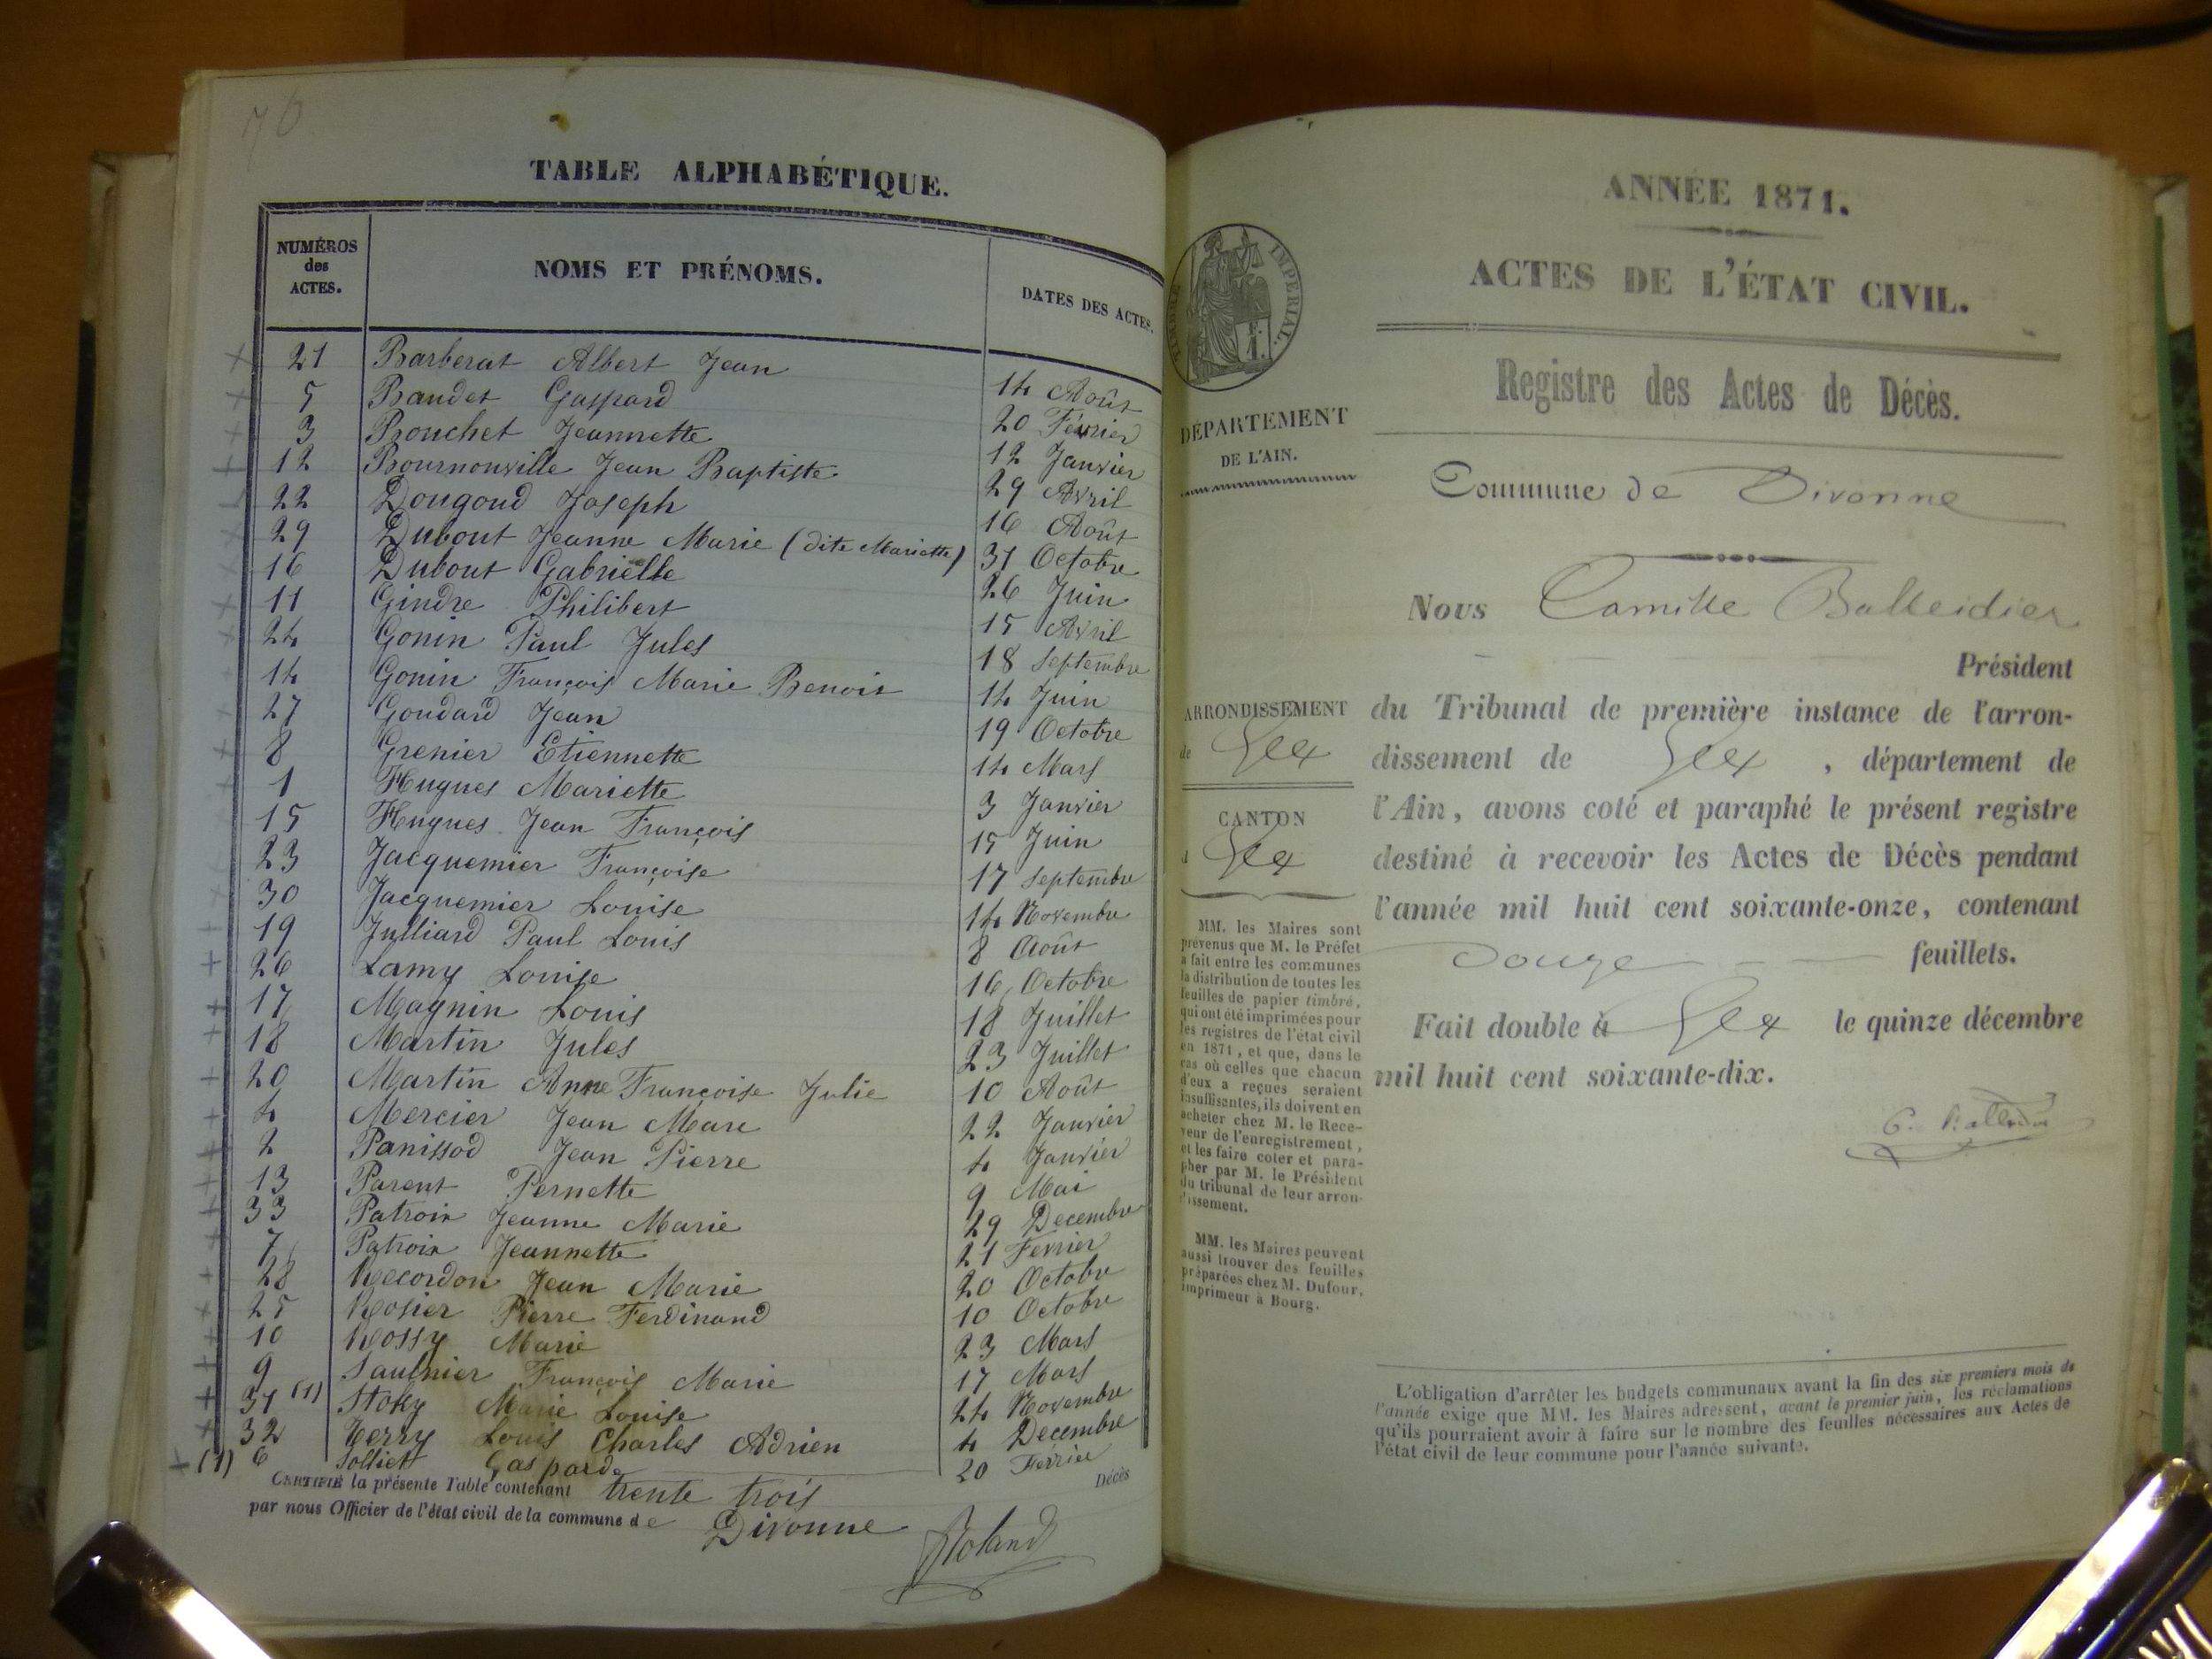 70
TABLE ALPHABÉTIQUE.
NUMÉROS des ACTES. NOMS ET PRÉNOMS. DATES DES ACTES.
21 Barberat Albert Jean 14 Août
5 Baudet Gaspard 20 Février
3 Bouchet Jeannette 12 Janvier
12 Bournonville Jean Baptiste 29 Avril
22 Dougoud Joseph 16 Août
29 Dubout Jeanne Marie (dite Mariette) 31 Octobre
16 Dubout Gabrielle 26 Juin
11 Gindre Philibert 15 Avril
24 Gonin Paul Jules 18 Septembre
14 Gonin François Marie Benoit 14 Juin
27 Goudard Jean 19 Octobre
8 Grenier Etiennette 14 Mars
1 Hugues Mariette 3 Janvier
15 Hugues Jean François 15 Juin
23 Jacquemier Françoise 17 Septembre
30 Jacquemier Louise 14 Novembre
19 Julliard Paul Louis 8 Août
26 Lamy Louise 16 Octobre
17 Magnin Louis 18 Juillet
18 Martin Jules 23 Juillet
20 Martin Anne Françoise Julie 10 Août
4 Mercier Jean Marc 22 Janvier
2 Panissod Jean Pierre 4 Janvier
13 Parent Pernette 9 Mai
33 Patroix Jeanne Marie 29 Decembre
7 Patroix Jeannette 21 Fevrier
28 Recordon Jean Marie 20 Octobre
25 Rosier Pierre Ferdinand 10 Octobre
10 Rossy Marie 23 Mars
9 Saulnier François Marie 17 Mars
31 (1) Stoky Marie Louise 24 Novembre
32 Verry Louis Charles Adrien 4 Decembre
(1) 6 Solliet Gasparde 20 Février
CERTIFIÉ la présente Table contenant trente trois Décès
par nous Officier de l'état civil de la commune de Divonne
Roland
ANNÉE 1871.
ACTES DE L'ÉTAT CIVIL.
TIMBRE IMPÉRIAL.
Registre des Actes de Décès.
DÉPARTEMENT
DE L'AIN.
Commune de Divonne
Nous Camille Balleidier
Président
ARRONDISSEMENT
de Gex
CANTON
d Gex
du Tribunal de première instance de l'arron-
dissement de Gex, département de
l'Ain, avons coté et paraphé le présent registre
destiné à recevoir les Actes de Décès pendant
l'année mil huit cent soixante-onze, contenant
Douze feuillets.
Fait double à Gex le quinze décembre
mil huit cent soixante-dix.
C. Balleidier
MM. les Maires sont
prévenus que M. le Préfet
a fait entre les communes
la distribution de toutes les
feuilles de papier timbré,
qui ont été imprimées pour
les registres de l'état civil
en 1871, et que, dans le
cas où celles que chacun
d'eux a reçues seraient
insuffisantes, ils doivent en
acheter chez M. le Rece-
veur de l'enregistrement,
et les faire coter et para-
pher par M. le Président
du tribunal de leur arron-
dissement.
MM. les Maires peuvent
aussi trouver des feuilles
préparées chez M. Dufour,
imprimeur à Bourg.
L'obligation d'arrêter les budgets communaux avant la fin des six premiers mois de
l'année exige que MM. les Maires adressent, avant le premier juin, les réclamations
qu'ils pourraient avoir à faire sur le nombre des feuilles nécessaires aux Actes de
l'état civil de leur commune pour l'année suivante.